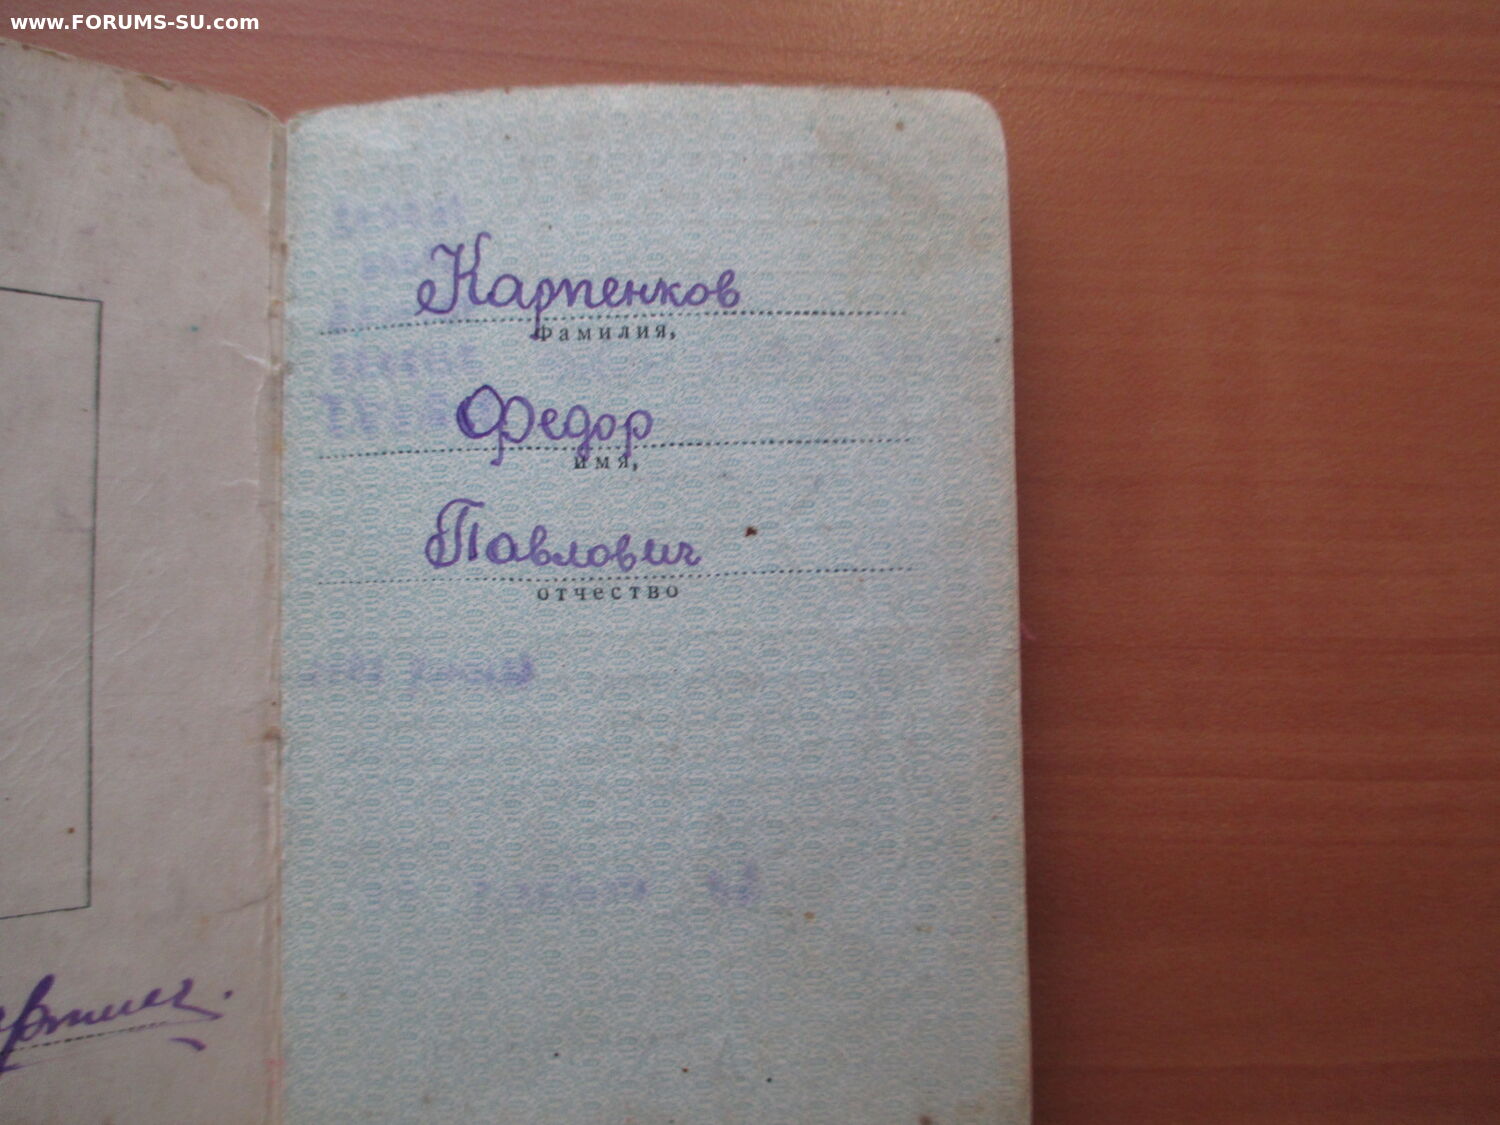 www.FORUMS-SU.com
Карпенков
Фамилия,
Федор
имя,
Павлович
отчество